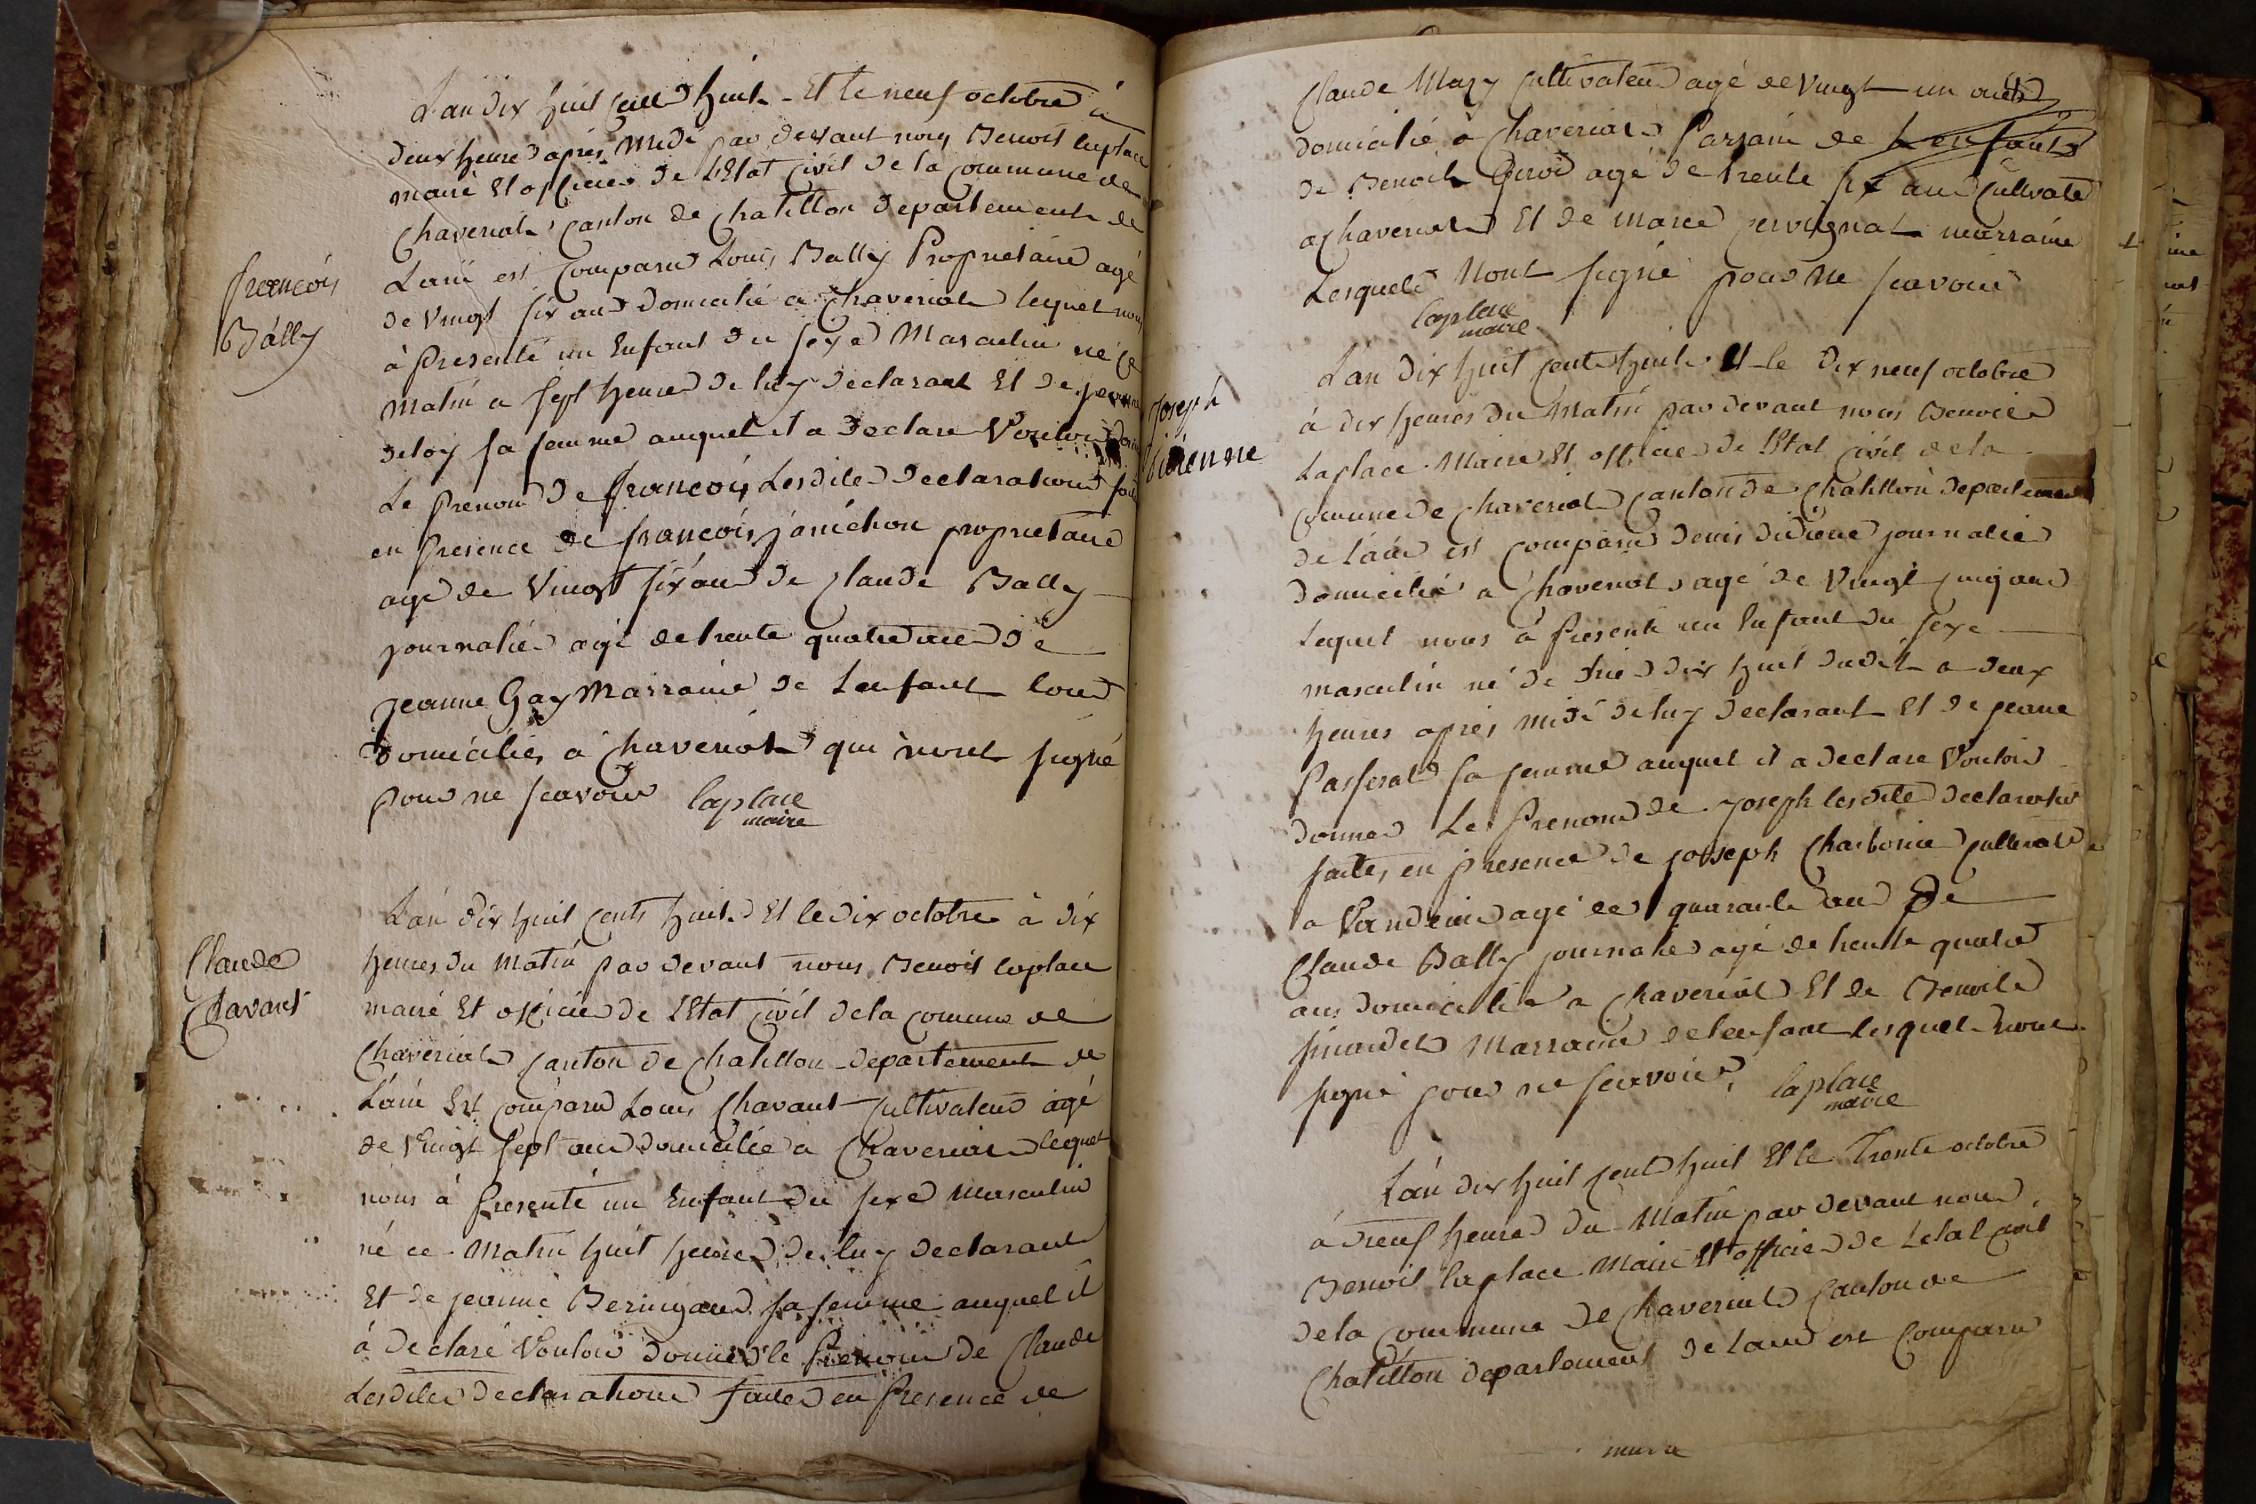 Lan dix huit cent huit Et le neuf octobre à
deux heure après midi par devant nous Benoit laplace
maire Et officier de L'Etat Civil de la commune de
Chaveriat canton de Chatillon Departement de
Lain est Comparu Louis Bally Proprietaire agé
de vingt six ans domicilié a Chaveriat lequel nous
à Presenté un Enfant du sexe Masculin né ce
François
Bally
matin a sept heure de luy declarant Et de jeanne
deloy sa femme auquel il a Declare Vouloir
Le prenom de françois Lesdite Declaration
en presence de françois janichon proprietaire
agé de Vingt six ans de Claude Bally
journalié agé de trente quatre ans de
jeanne Gay Marraine de Lenfant tous
domiciliés a Chaveriat qui n'ont signé
pour ne scavoir laplace
maire
Lan dix huit cents huit Et le dix octobre à dix
heures du matin par devant nous Benoit laplace
maire Et officier de L'Etat Civil de la comune de
Claude
Chavant
Chaveriat canton de Chatillon departement de
Lain Est comparu Louis Chavant cultivateur agé
de Vingt sept ans domicilié a Chaveriat lequel
nous à Presenté un Enfant du sexe masculin
né ce matin huit heure de luy declarant
Et de jeanne sa femme auquel il
à Declaré Vouloir donner le Prenom de Claude
Lesdite declaration faite en Presence de
Claude Mazy cultivateur agé de Vingt un ans
domicilié a Chaveriat Parrain de Lenfant
de Benoit agé de trente six ans Cultivate
a Chaveriat Et de marie pervignat marraine
Lesquels Nont signé pour ne scavoir
laplace
maire
Lan dix huit cent huit Et le dix neuf octobre
à dix heures du Matin par devant nous Benoit
Laplace Maire Et officier de l'Etat civil de la
Joseph
comune de Chaveriat canton de Chatillon departement
de lain est comparu denis didiene journalié
domicilié a Chaveriat agé de Vingt cinq ans
Lequel nous à Presenté un Enfant du sexe
masculin né de dix huit dudit a deux
heures après midi de luy declarant Et de jeane
Passerat sa femme auquel il a declare Vouloir
donner Le Prenom de joseph lesdite declaration
faites en presence de joseph Charbonie cultivate
a Vandeins agé de quarante ans De
Claude Bally journalie agé de trente quatre
ans domicilié a Chaveriat Et de Benoite
Marraine de lenfant lesquel nont
signé pour ne scavoir laplace
maire
Lan dix huit cent huit Et le Trente octobre
à neuf heure du Matin par devant nous
Benoit laplace Maire Et officier de Letat civil
de la commune de Chaveriat Canton de
Chatillon departement de lain est Comparu